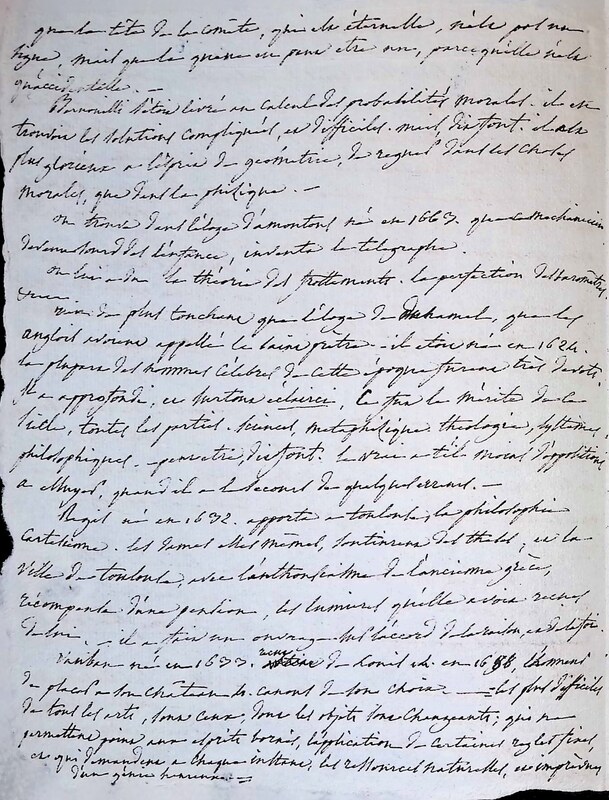 que la tête de la comète, qui est éternelle, n'est pas un
signe, mais que la queue en peut etre un, parce qu'elle n'est
qu'accidentelle. —
Bernouilli s'étoit livré au calcul des probabilités morales. il en
trouvoit les solutions compliqués, et difficiles. mais, dis font. il est
plus glorieux a l'esprit de géometrie, de regner dans les choses
morales, que dans la phisique. —
on trouve dans l'éloge d'amontons né en 1663. que ce mechanicien
devenu sourd dès l'enfance, inventa le telegraphe.
on lui a du la théorie des frottements. la perfection des barometres
rien de plus touchant que l'éloge de Duhamel, que les
anglois avoient appellé le saint prêtre. il etoit né en 1624.
la plupart des hommes célèbres de cette époque furent très devots.
il a approfondi, et surtout éclairci, ce fut le mérite de ce
siècle, toutes les parties. sciences, metaphisique, theologie, systèmes
philosophiques. — peut etre, dit font. le vrai a t'il moins d'oppositions
a essuyer, quand il a le secours de quelques erreurs. —
Regis né en 1632. apporta a toulouse, la philosophie
Cartesienne. les dames elles mêmes, soutinrent des theses, et la
ville de toulouse, avec l'enthousiasme de l'ancienne grèce,
récompensa d'une pension, les lumieres qu'elle avoit recues
de lui. — il a fait un ouvrage sur l'accord de la raison, et de la foi.
Vauban né en 1633. recut de Louis 14. en 1688, l'honneur
de placer a son château 4. canons de son choix. — les plus difficiles
de tous les arts, sont ceux, dont les objets sont changeants; qui ne
permettent point aux esprits bornés, l'application de certaines regles fixes,
et qui demandent a chaque instant, les ressources naturelles, et imprévues
d'un génie heureux. —